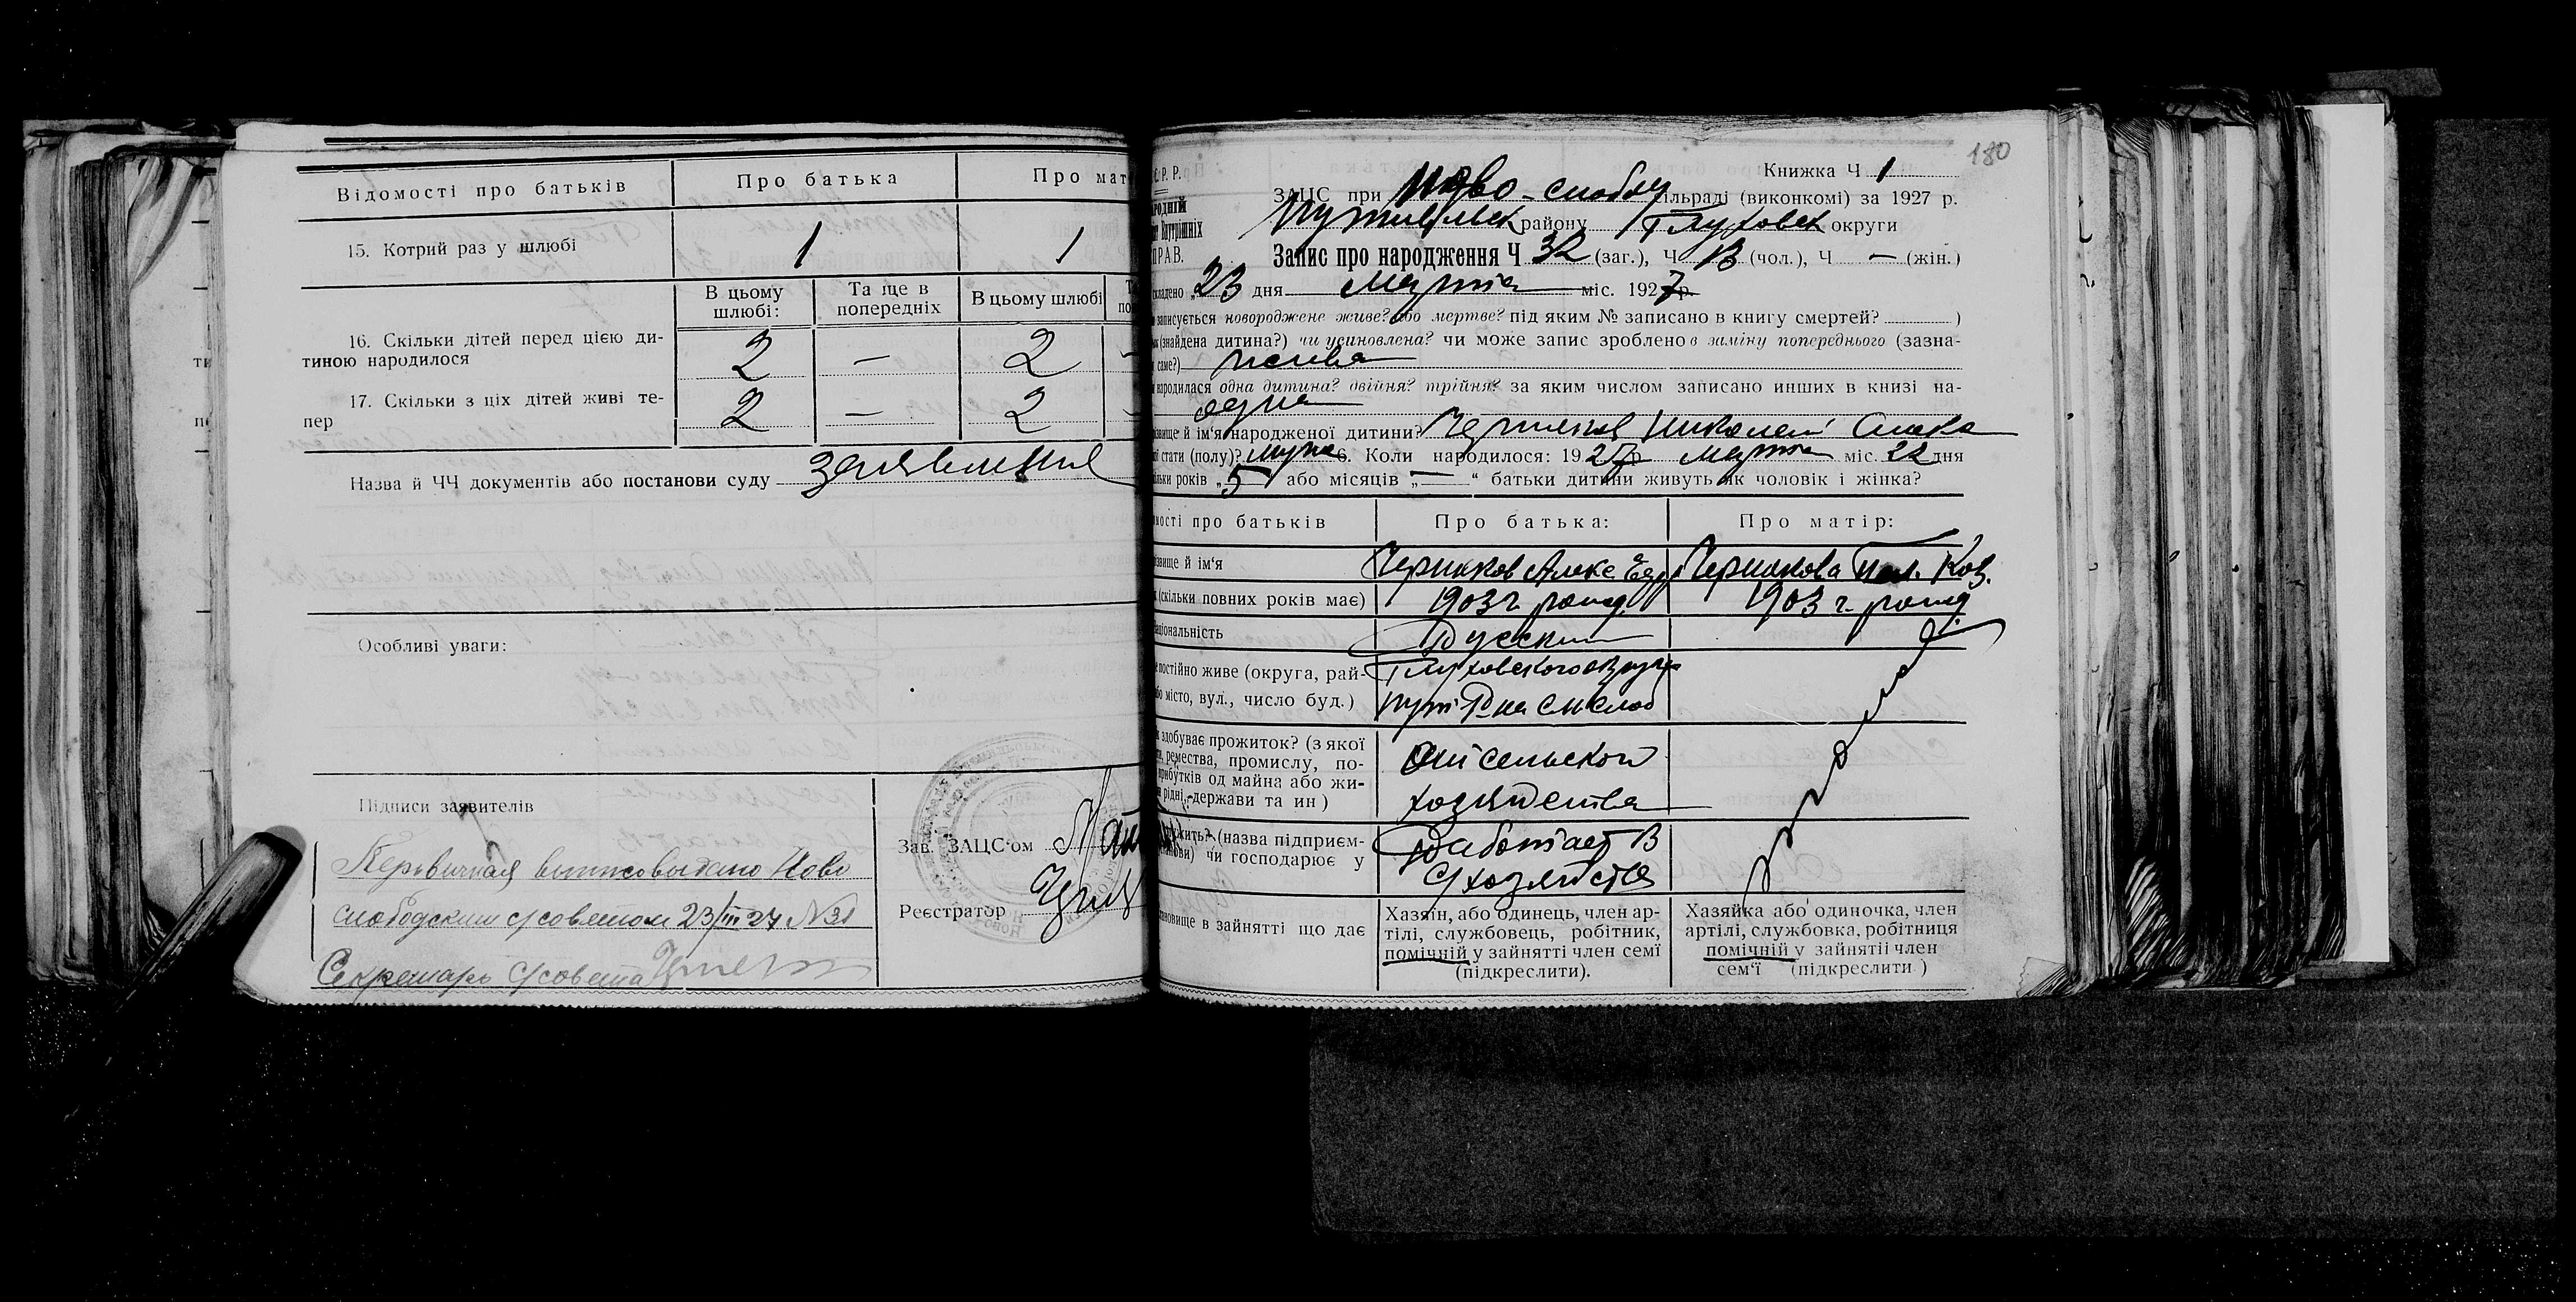 Відомості про батьків
Про батька
Про мат
15. Котрий раз у шлюбі
1
1
В цьому шлюбі:
Та ще в попередніх
В цьому шлюбі
16. Скільки дітей перед цією ди-
тиною народилося
2 — 2 —
17. Скільки з ціх дітей живі те-
пер
2 — 2 —
Назва й ЧЧ документів або постанови суду
Особливі уваги:
Підписи заявителів
выдано Ново
слободским с/советом 23/III 27 №
Секретарь с/совета
Зав. ЗАЦС'ом
Реєстратор
180
Р. Р.
Книжка Ч 1
ЗАЦС при Ново-слобод сільраді (виконкомі) за 1927 р.
Путивльск району Глуховск округи
Внутрішніх
ПРАВ.
Запис про народження Ч 32 (заг.), Ч 13 (чол.), Ч — (жін.)
кладено „23 дня Марта міс. 1927 р.
записується новороджене живе? або мертве? під яким № записано в книгу смертей? )
(знайдена дитина?) чи усиновлена? чи може запис зроблено в заміну попереднього (зазна-
саме?) жива
народилася одна дитина? двійня? трійня? за яким числом записано инших в книзі на-
одна
звище й ім'я народженої дитини? Черняков Николай Алекс
стати (полу)? муж 6. Коли народилося: 1927 р Марта міс. 22 дня
ільки років „5 або місяців „—“ батьки дитини живуть як чоловік і жінка?
мості про батьків
Про батька:
Про матір:
звище й ім'я
Черняков Алекс Чернякова
(скільки повних років має)
1903 г. рожд.
1903 г. рожд.
ціональність
Русский
постійно живе (округа, рай-
бо місто, вул., число буд.)
Глуховского округа
Пут Р-на Слобод
здобуває прожиток? (з якої
ремества, промислу, по-
прибутків од майна або жи-
рідні, держави та ин)
От сельского
хозяйства
жить? (назва підприєм-
нови) чи господарює у
Работает в
с/хозяйстве
новище в зайнятті що дає
Хазяїн, або одинець, член ар-
тілі, службовець, робітник,
помічній у зайнятті член семї
(підкреслити).
Хазяйка або одиночка, член
артілі, службовка, робітниця
помічній у зайнятіі член
сем'ї (підкреслити)